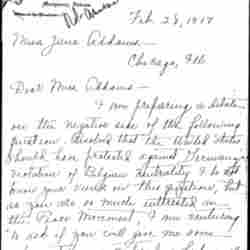 Montgomery, Alabama
Feb. 28, 1917
Miss Jane Addams —
Chicago, Ill.
Dear Miss Addams —
I am preparing a debate
on the negative side of the following
question, Resolved that the United States
should have protested against Germany's
violation of Belgium neutrality. I do not
know your views on this question, but
as you are so much interested in
the Peace Movement, I am venturing
to ask if you will give me some